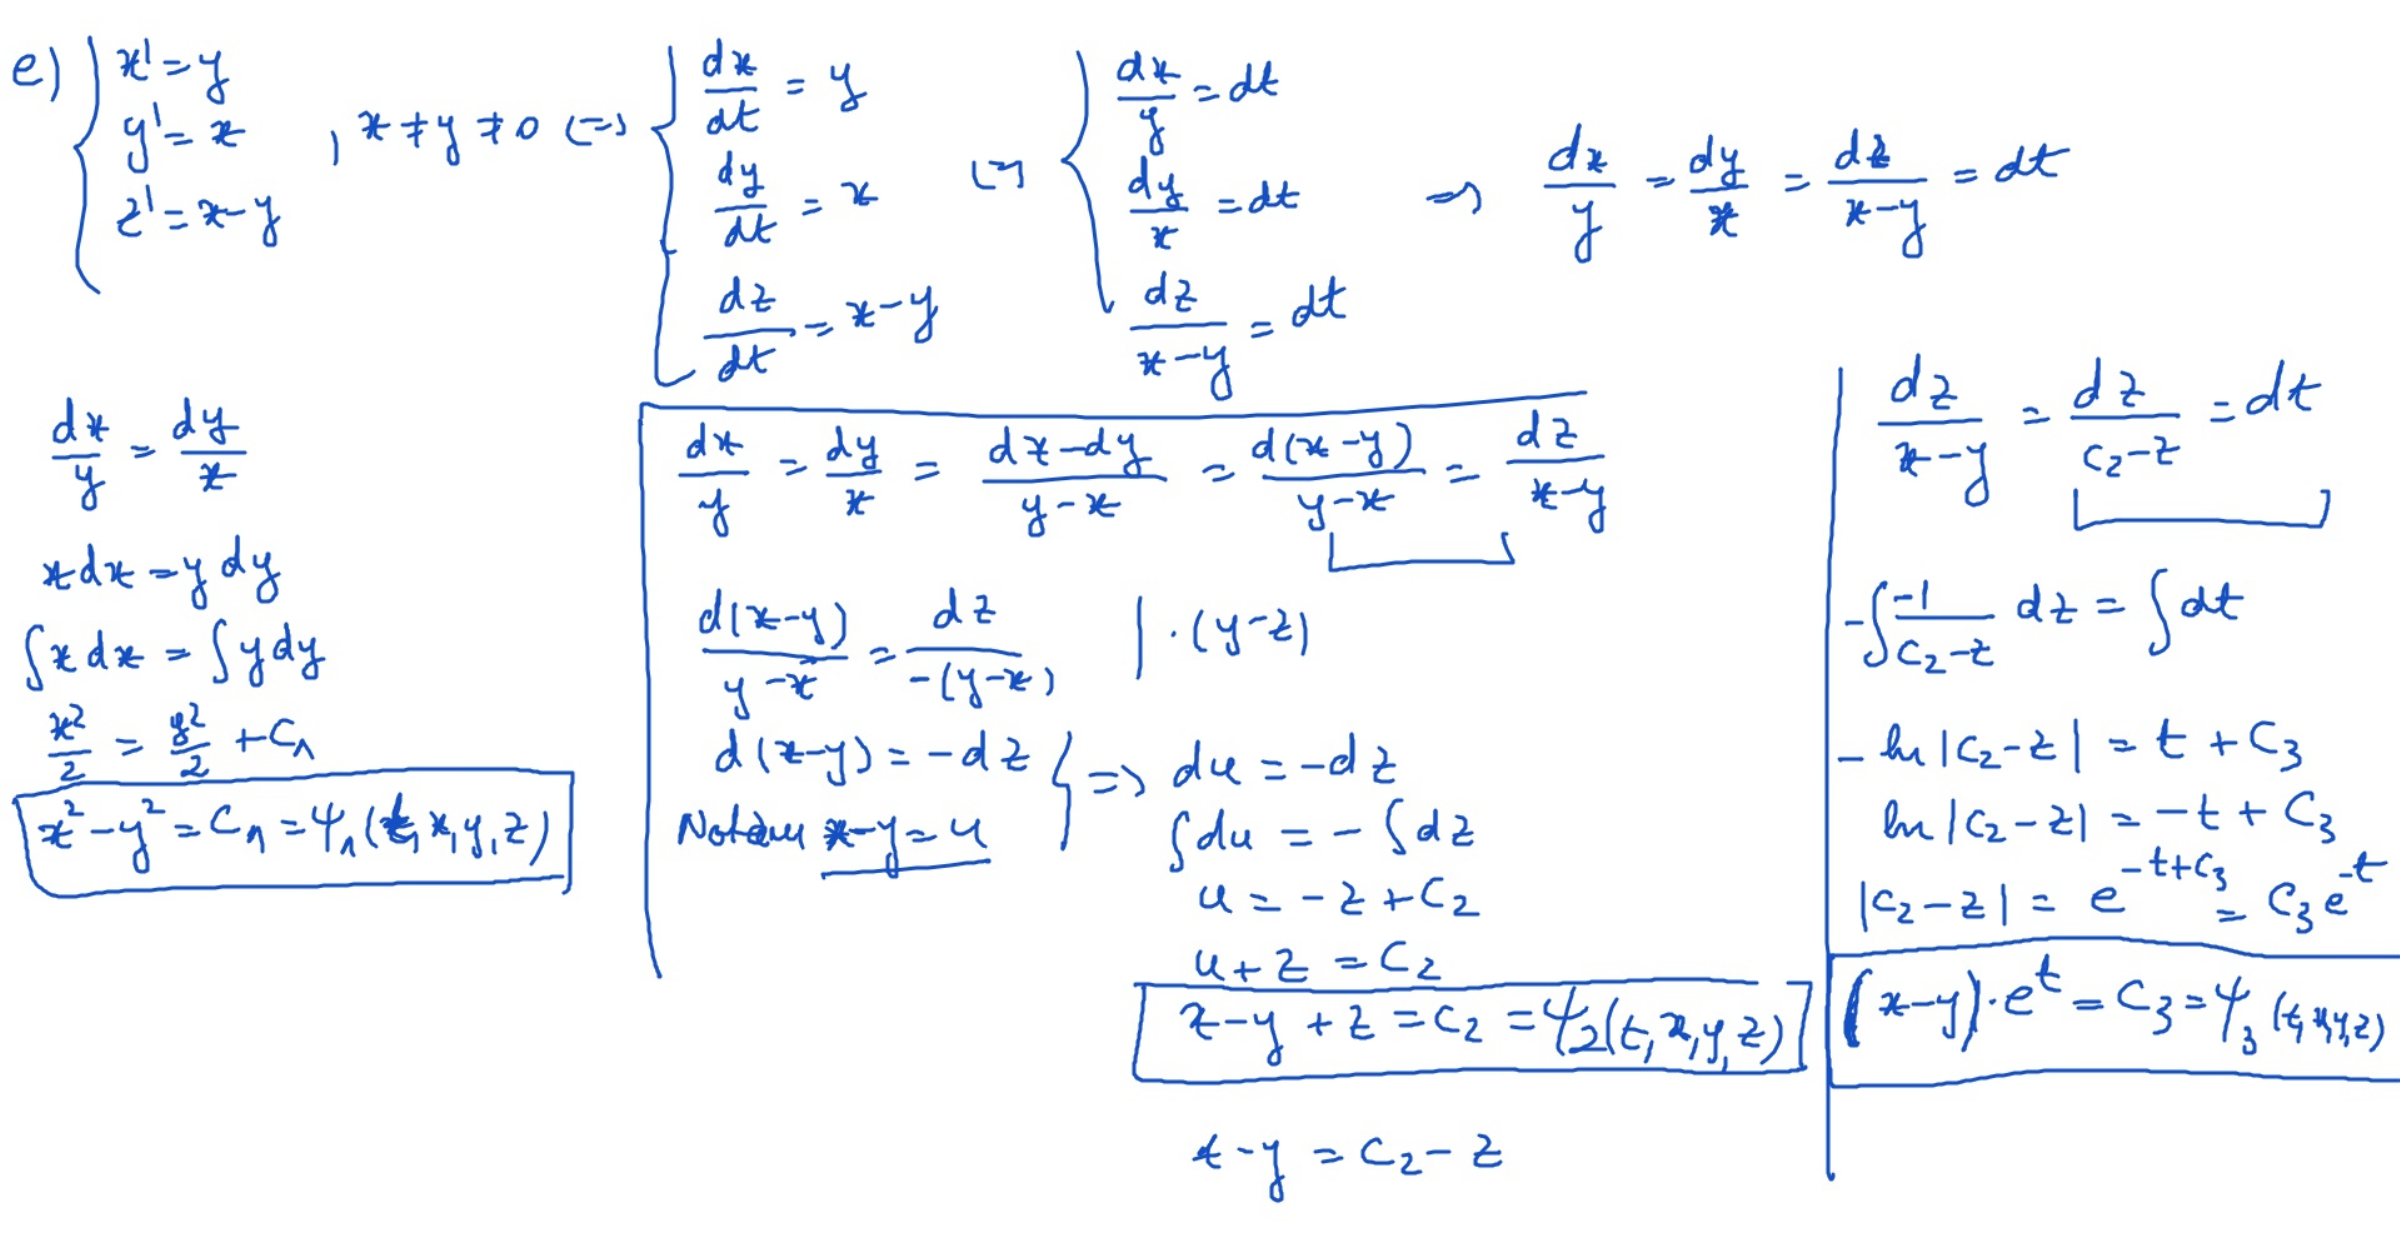 e) { x' = y
y' = x
z' = x-y
, x ≠ y ≠ 0 (=>
{ dx/dt = y
dy/dt = x
dz/dt = x-y
(=>
{ dx/y = dt
dy/x = dt
dz/(x-y) = dt
=> dx/y = dy/x = dz/(x-y) = dt
dx/y = dy/x
x dx = y dy
∫ x dx = ∫ y dy
x²/2 = y²/2 + C₁
x² - y² = C₁ = Ψ₁(t, x, y, z)
dx/y = dy/x = (dx-dy)/(y-x) = d(x-y)/(y-x) = dz/(x-y)
d(x-y)/(y-x) = dz/(-(y-x)) | ·(y-z)
d(x-y) = -dz
Notăm x-y = u
} => du = -dz
∫ du = - ∫ dz
u = -z + C₂
u + z = C₂
x - y + z = C₂ = Ψ₂(t, x, y, z)
x - y = C₂ - z
dz/(x-y) = dz/(C₂-z) = dt
-∫ -1/(C₂-z) dz = ∫ dt
- ln |C₂-z| = t + C₃
ln |C₂-z| = -t + C₃
|C₂-z| = e^(-t+C₃) = C₃ e^(-t)
(x-y)·e^t = C₃ = Ψ₃(t, x, y, z)